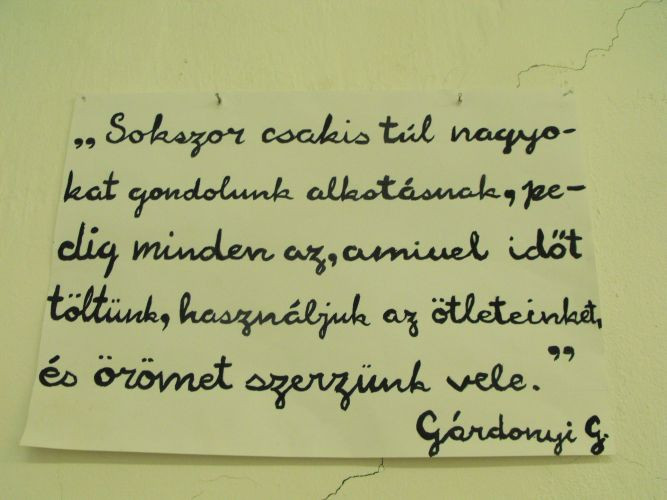 „Sokszor csakis túl nagyo-
kat gondolunk alkotásnak, pe-
dig minden az, amivel időt
töltünk, használjuk az ötleteinket,
és örömet szerzünk vele.”
Gárdonyi G.